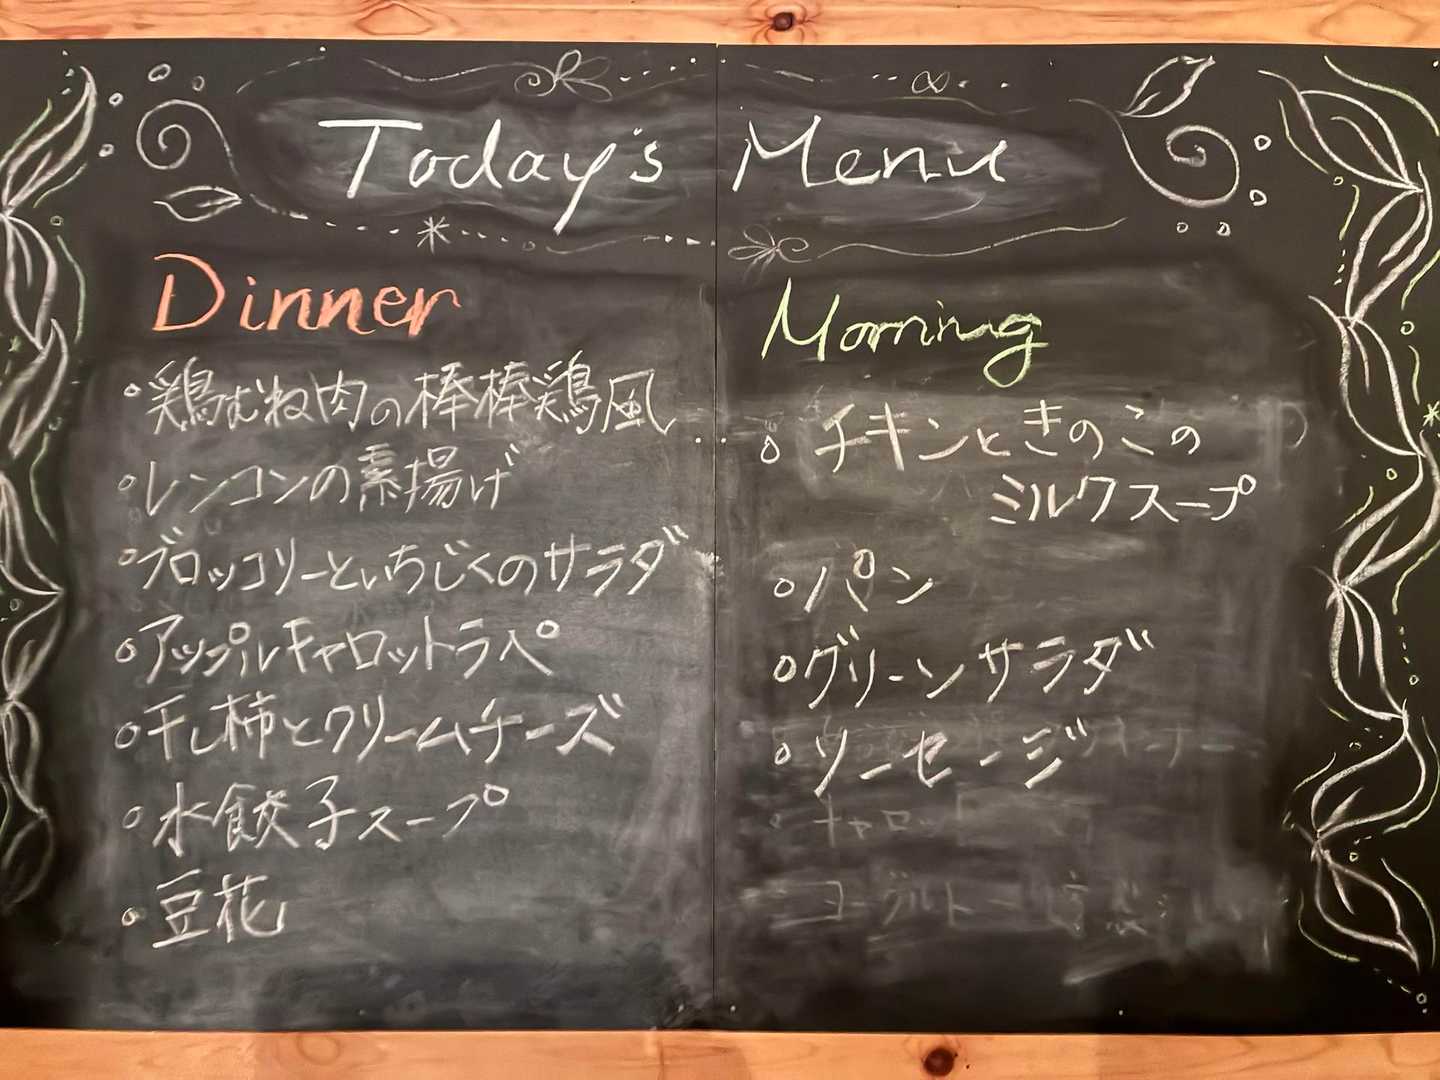 Today's Menu
Dinner
鶏むね肉の棒棒鶏風
レンコンの素揚げ
ブロッコリーといちじくのサラダ
アップルキャロットラペ
干し柿とクリームチーズ
水餃子スープ
豆花
Morning
チキンときのこの
ミルクスープ
パン
グリーンサラダ
ソーセージ
キャロット
ヨーグルト